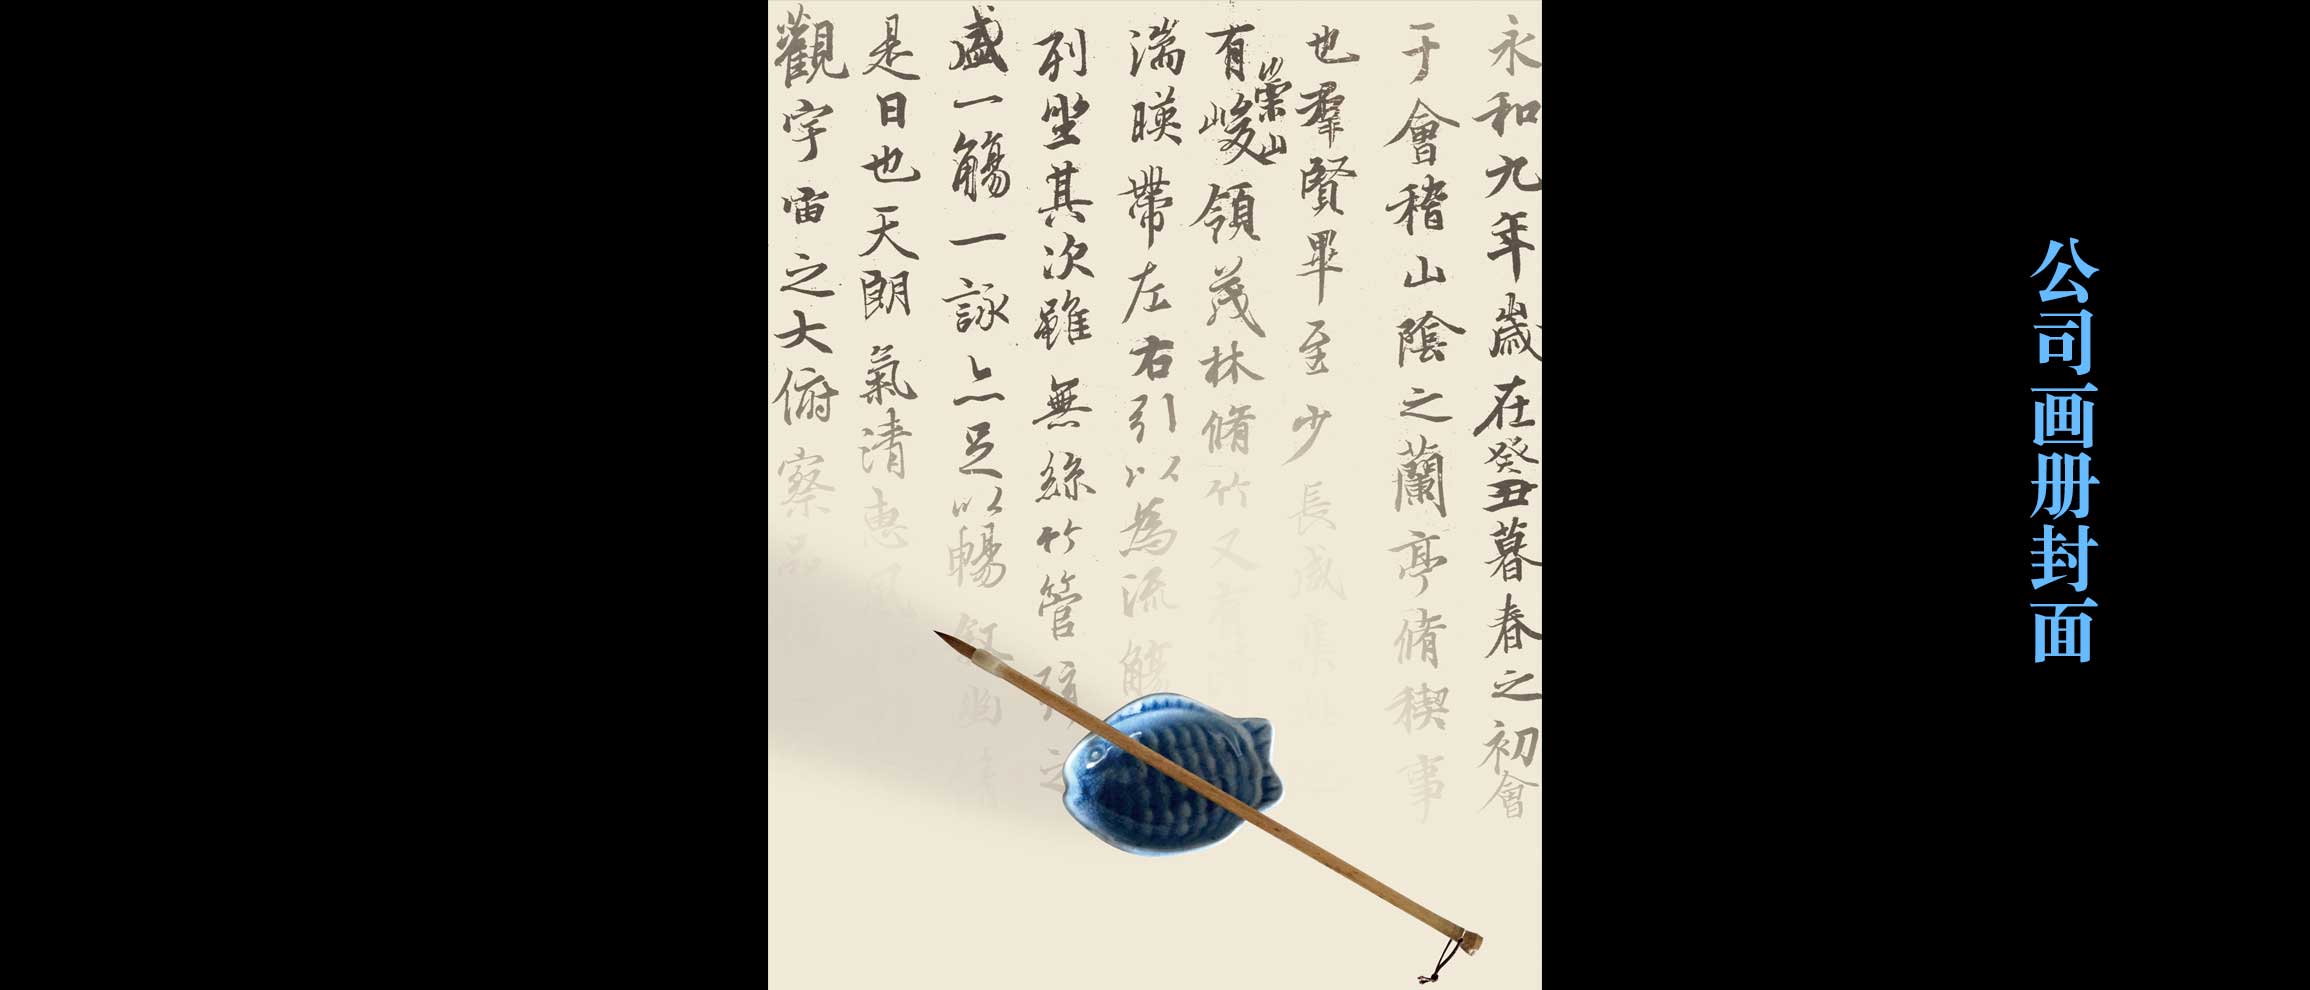 永和九年歲在癸丑暮春之初會
于會稽山陰之蘭亭脩稧事
也羣賢畢至少長咸集
有崇山峻領茂林脩竹又有清
湍暎帶左右引以為流觴
列坐其次雖無絲竹管弦之
盛一觴一詠亦足以暢叙幽情
是日也天朗氣清惠風
觀宇宙之大俯察品
公司画册封面